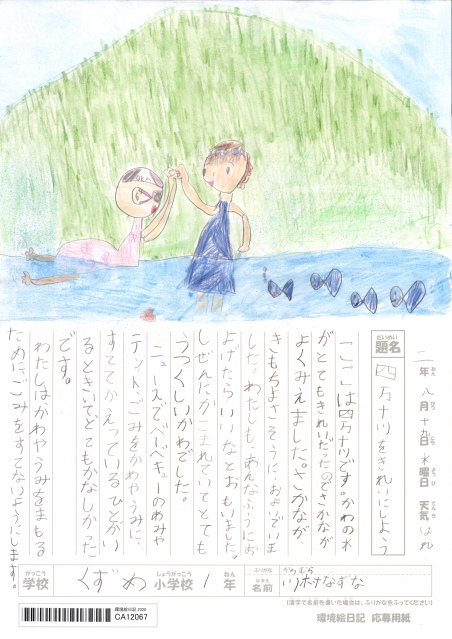 二年 八月 十九日 水曜日 天気 はれ
題名 四万十川をきれいにしよう
「ここ」は四万十川です。かわの水
がとてもきれいだったのでさかなが
よくみえました。さかなが
きもちよさそうに、およいでいま
した。わたしも、あんなふうにお
よげたらいいなとおもいました。
しぜんにかこまれていてとても
うつくしいかわでした。
ニュースで、バーベキューのあみや
テント、ごみをかわやうみに、
すててかえっているひとがい
るときいて、とてもかなしかった
です。
わたしはかわやうみをまもる
ために、ごみをすてないようにします。
がっこう しょうがっこう ねん ふりがな かわむら
学校 くずめ 小学校 1年 名前 川村なずな
(漢字で名前を書いた場合は、ふりがなをふってください)
環境絵日記 2020
CA12067
環境絵日記 応募用紙